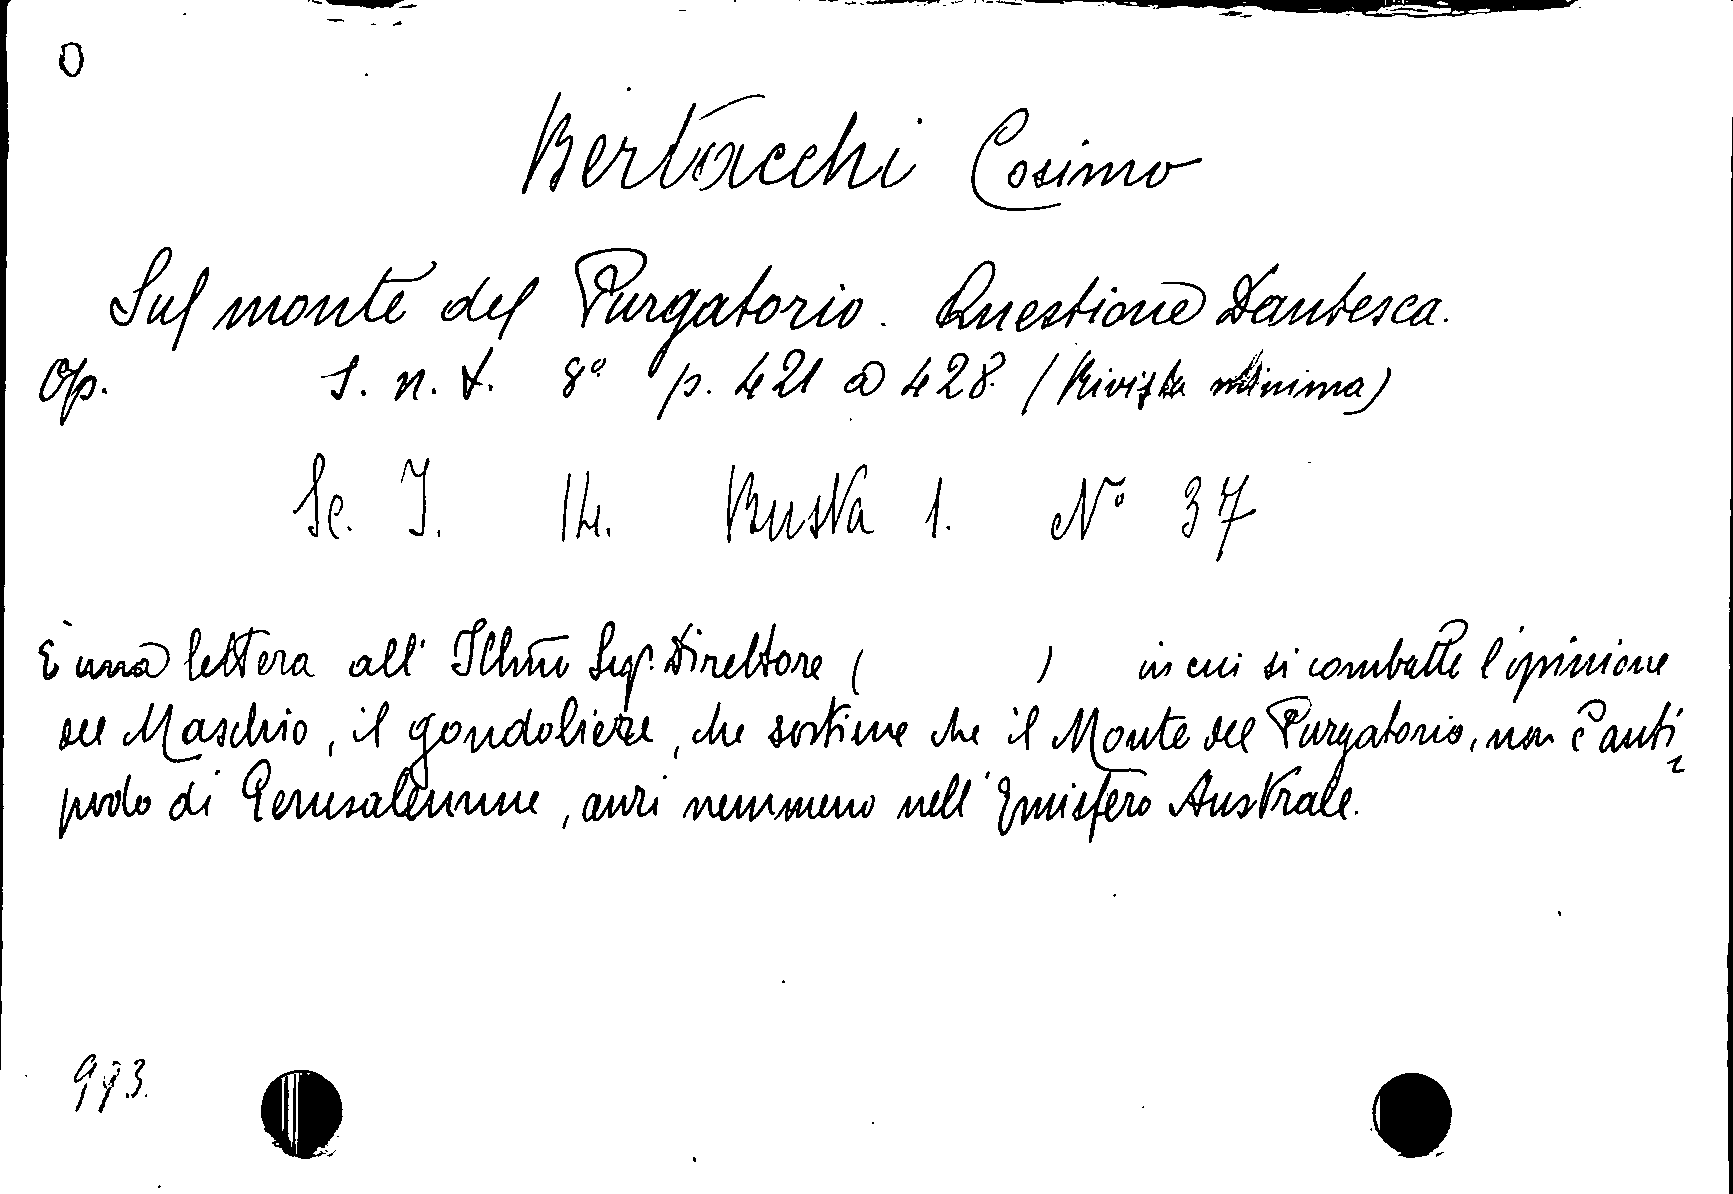 O
Bertacchi Cosimo
Sul monte del Purgatorio. Questione Dantesca.
Op. S. n. t. 8° p. 421 a 428. (Rivista minima)
Sc. I. 14. Busta 1. N° 37
È una lettera all' Illm̃o Sig. Direttore ( ) in cui si combatte l'opinione
del Maschio, il gondoliere, che sostiene che il Monte del Purgatorio, non è anti-
podo di Gerusalemme, anzi nemmeno nell' Emisfero Australe.